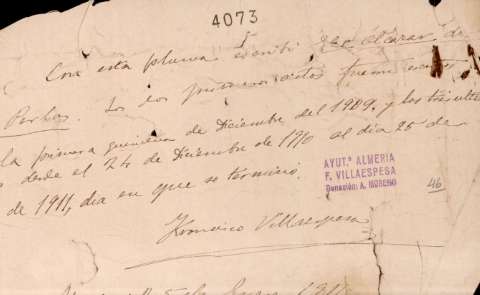 4073
Con esta pluma escribí "El Alcázar de
Perlas". Los dos primeros actos fueron escritos
la primera quincena de Diciembre del 1909, y los dos últi
desde el 24 de Diciembre de 1910 al día 25 de
de 1911, día en que se terminó.
Francisco Villaespesa
AYUTº ALMERIA
F. VILLAESPESA
Donación: A. MORENO
46